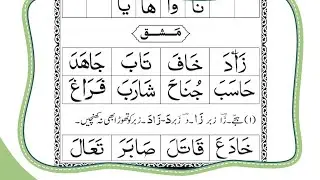 نَا وَا هَا يَا
مشق
زَادَ خَافَ تَابَ جَاهَدَ
حَاسَبَ جُنَاحَ شَارَبَ فَرَاغَ
خَادَعَ قَاتَلَ صَابَرَ تَعَالَ